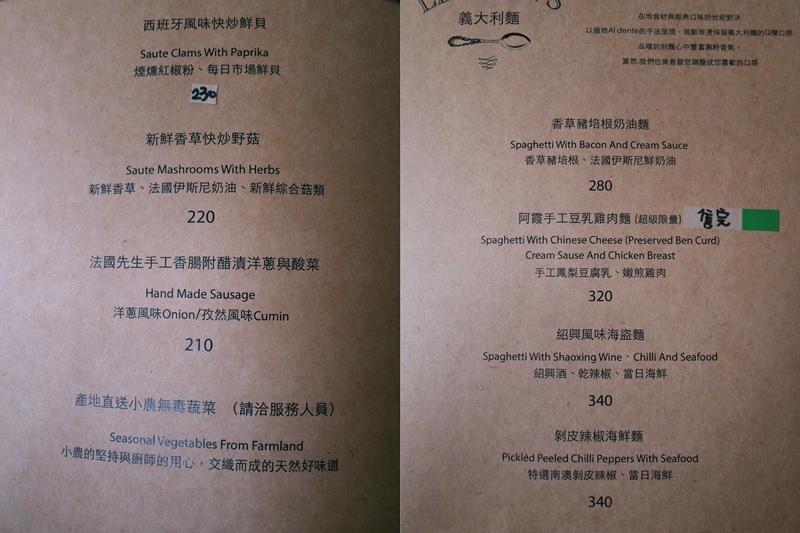 西班牙風味快炒鮮貝
Saute Clams With Paprika
煙燻紅椒粉、每日市場鮮貝
230
新鮮香草快炒野菇
Saute Mashrooms With Herbs
新鮮香草、法國伊斯尼奶油、新鮮綜合菇類
220
法國先生手工香腸附醋漬洋蔥與酸菜
Hand Made Sausage
洋蔥風味Onion/孜然風味Cumin
210
產地直送小農無毒蔬菜 （請洽服務人員）
Seasonal Vegetables From Farmland
小農的堅持與廚師的用心，交織而成的天然好味道
義大利麵
在地食材與經典口味的世紀對決
以道地Al dente的手法呈現，現點現燙保留義大利麵的Q彈口感
品嚐的到麵心中豐富澱粉香氣，
當然,我們也樂意替您調整成您喜歡的口感
香草豬培根奶油麵
Spaghetti With Bacon And Cream Sauce
香草豬培根、法國伊斯尼鮮奶油
280
阿霞手工豆乳雞肉麵 (超級限量) 售完
Spaghetti With Chinese Cheese (Preserved Ben Curd)
Cream Sause And Chicken Breast
手工鳳梨豆腐乳、嫩煎雞肉
320
紹興風味海盜麵
Spaghetti With Shaoxing Wine、Chilli And Seafood
紹興酒、乾辣椒、當日海鮮
340
剝皮辣椒海鮮麵
Pickled Peeled Chilli Peppers With Seafood
特選南澳剝皮辣椒、當日海鮮
340